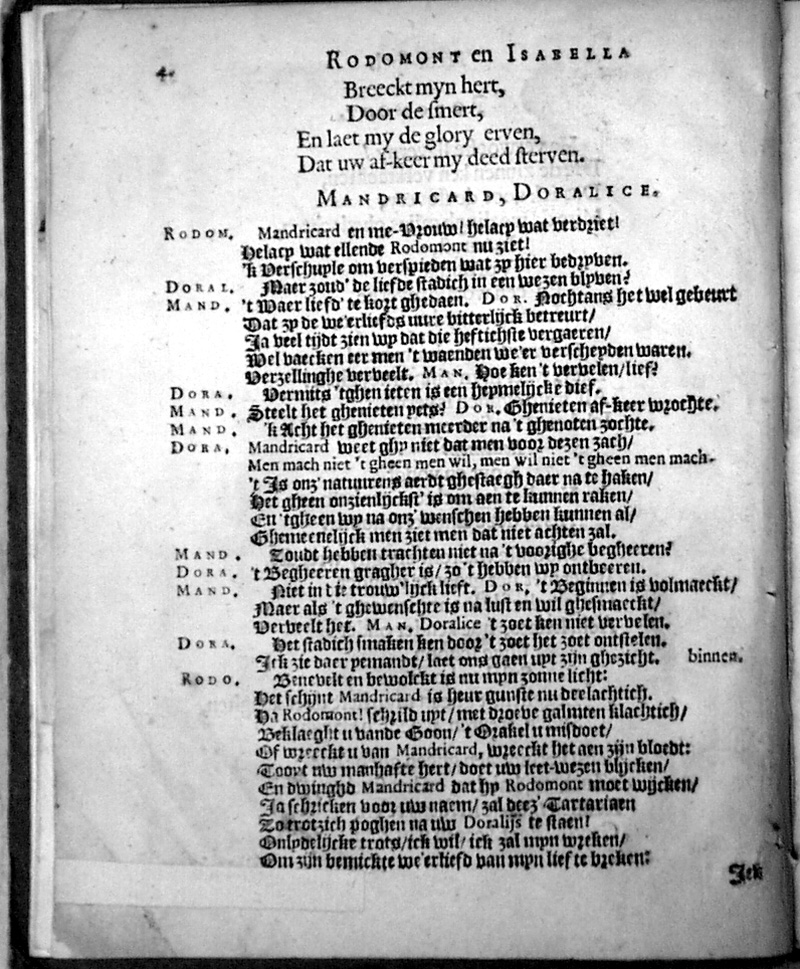 4.
RODOMONT en ISABELLA
Breeckt myn hert,
Door de smert,
En laet my de glory erven,
Dat uw af-keer my deed sterven.
MANDRICARD, DORALICE.
RODOM. Mandricard en me-Vrouw! helaep wat verdriet!
Helaep wat ellende Rodomont nu ziet!
'k Verschuyle om verspieden wat zy hier bedryven.
DORAL. Maer zoud' de liefde stadich in een wezen blyven?
MAND. 't Waer liefd' te kort ghedaen. DOR. Nochtans het wel gebeurt
Dat zp de we'erliefds uure bitterlijck betreurt/
Ja veel tijdt zien wy dat die heftichste vergaeren/
Wel vaecken eer men 't waenden we'er verscheyden waren.
Verzellinghe verveelt. MAN. Hoe ken't vervelen/lief?
DORA. Vermits 'tghenieten is een heymelijcke dief.
MAND. Steelt het ghenieten yets? DOR. Ghenieten af-keer wrochte.
MAND. 'k Acht het ghenieten meerder na 't ghenoten zochte.
DORA. Mandricard weet ghy niet dat men voor dezen zach/
Men mach niet 't gheen men wil, men wil niet 't gheen men mach.
't Is onz' natuurens aerdt ghestaegh daer na te haken/
Het gheen onzienlijckst' is om aen te kunnen raken/
En 'tgheen wy na onz' wenschen hebben kunnen al/
Ghemeenelijck men ziet men dat niet achten zal.
MAND. Zoudt hebben trachten niet na 't voorighe begheeren?
DORA. 't Begheeren gragher is/ zo 't hebben wy ontbeeren.
MAND. Niet in d'e trouw'lijck lieft. DOR. 't Beginnen is volmaeckt/
Maer als 't ghewenschte is na lust en wil ghesmaeckt/
Verveelt het. MAN. Doralice 't zoet ken niet vervelen.
DORA. Het stadich smaken ken door 't zoet het zoet ontstelen.
Ick zie daer yemandt/ laet ons gaen uyt zijn ghezicht. binnen.
RODO. Benevelt en bewolckt is nu mijn zonne licht:
Het schijnt Mandricard is heur gunste nu deelachtich.
Ha Rodomont! schrild uyt/ met droeve galmten klachtich/
Beklaeght u vande Goon/ 't Orakel u misdoet/
Of wreeckt u van Mandricard, wreeckt het aen zijn bloedt:
Toont uw manhafte hert/ doet uw leet-wezen blijcken/
En dwinghd Mandricard dat hy Rodomont moet wijcken/
Ja schricken voor uw naem/ zal deez' Tartariaen
Zo trotzich poghen na uw Doralijs te staen!
Onlydelijcke trots/ ick wil/ ick zal myn wreken/
Om zijn bemickte we'erliefd van myn lief te breken:
Ick